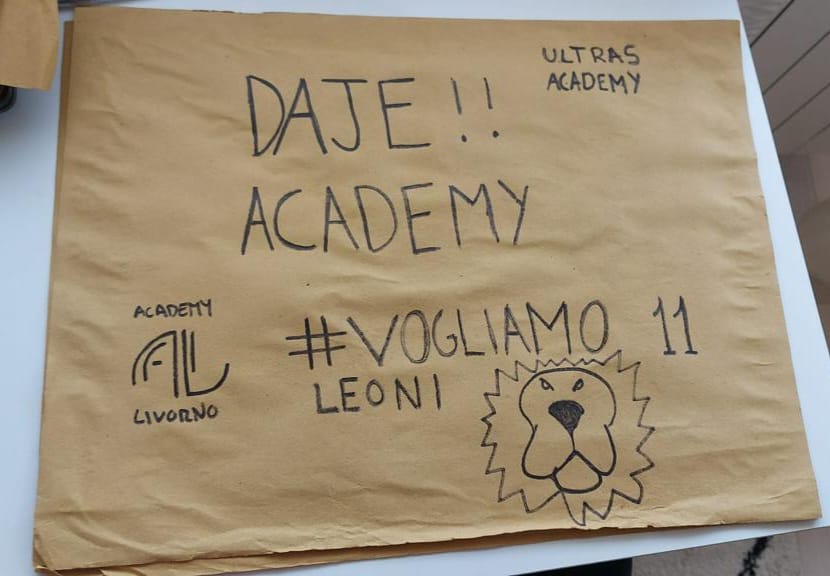 ULTRAS
ACADEMY
DAJE !!
ACADEMY
#VOGLIAMO 11
LEONI
ACADEMY
AL
LIVORNO